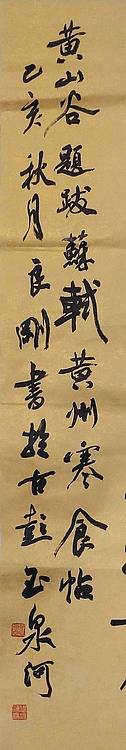 黄山谷題跋蘇軾黄州寒食帖
乙亥秋月良剛書於古彭玉泉河